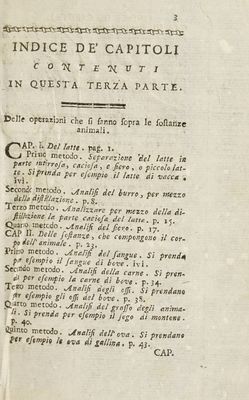 3
INDICE DE' CAPITOLI
CONTENUTI
IN QUESTA TERZA PARTE.
Delle operazioni che si fanno sopra le sostanze
animali.
CAP. I. Del latte. pag. 1.
Primo metodo. Separazione del latte in
parte butirrosa, caciosa, e siero, o piccolo lat-
te. Si prenda per esempio il latte di vacca.
ivi.
Secondo metodo. Analisi del burro, per mezzo
della distillazione. p. 8.
Terzo metodo. Analizzare per mezzo della di-
stillazione la parte caciosa del latte. p. 15.
Quarto metodo. Analisi del siero. p. 17.
CAP II. Delle sostanze, che compongono il cor-
po dell'animale. p. 23.
Primo metodo. Analisi del sangue. Si prenda
per esempio il sangue di bove. ivi.
Secondo metodo. Analisi della carne. Si pren-
da per esempio la carne di bove. p. 34.
Terzo metodo. Analisi degli ossi. Si prendano
per esempio gli ossi del bove. p. 38.
Quarto metodo. Analisi del grasso degli anima-
li. Si prenda per esempio il sego di montone.
p. 40.
Quinto metodo. Analisi dell'ova. Si prendano
per esempio le ova di gallina. p. 43.
CAP.